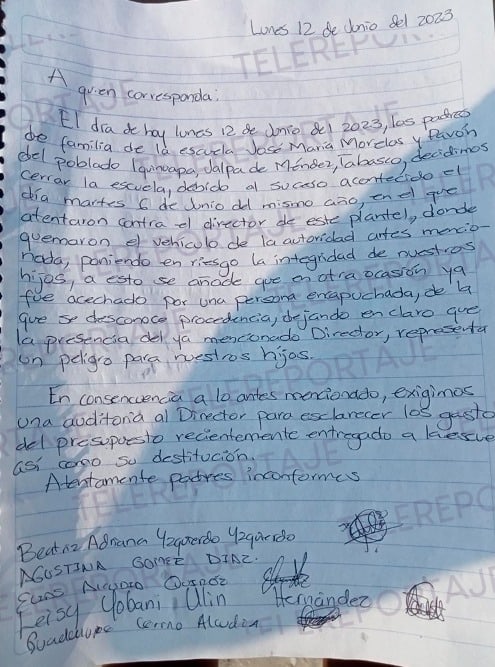 Lunes 12 de Junio del 2023
A
quien corresponda:
El día de hoy lunes 12 de Junio del 2023, los padres
de familia de la escuela José María Morelos y Pavón
del poblado Iquinuapa, Jalpa de Méndez, Tabasco, decidimos
cerrar la escuela, debido al suceso acontecido el
día martes 6 de Junio del mismo año, en el que
atentaron contra el director de este plantel, donde
quemaron el vehículo de la autoridad antes mencio-
nada, poniendo en riesgo la integridad de nuestros
hijos, a esto se añade que en otra ocasión ya
fue acechado por una persona encapuchada, de la
que se desconoce procedencia, dejando en claro que
la presencia del ya mencionado Director, representa
un peligro para nuestros hijos.
En consecuencia a lo antes mencionado, exigimos
una auditoria al Director para esclarecer los gasto
del presupuesto recientemente entregado a la escue
así como su destitución.
Atentamente padres inconformes
Beatriz Adriana Yzquierdo Yzquierdo
AGUSTINA GOMEZ DIAZ.
Leisy Yobani Ulin Hernández
Guadalupe Cerino
TELEREPORTAJE